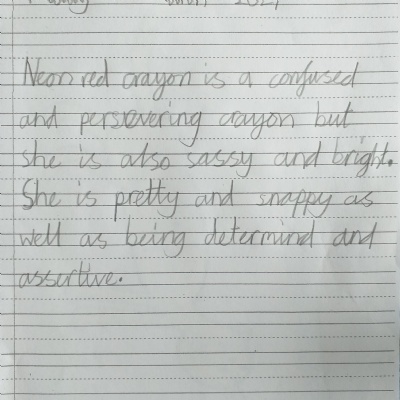 Neon red crayon is a confused
and persevering crayon but
she is also sassy and bright.
She is pretty and snappy as
well as being determind and
assurtive.